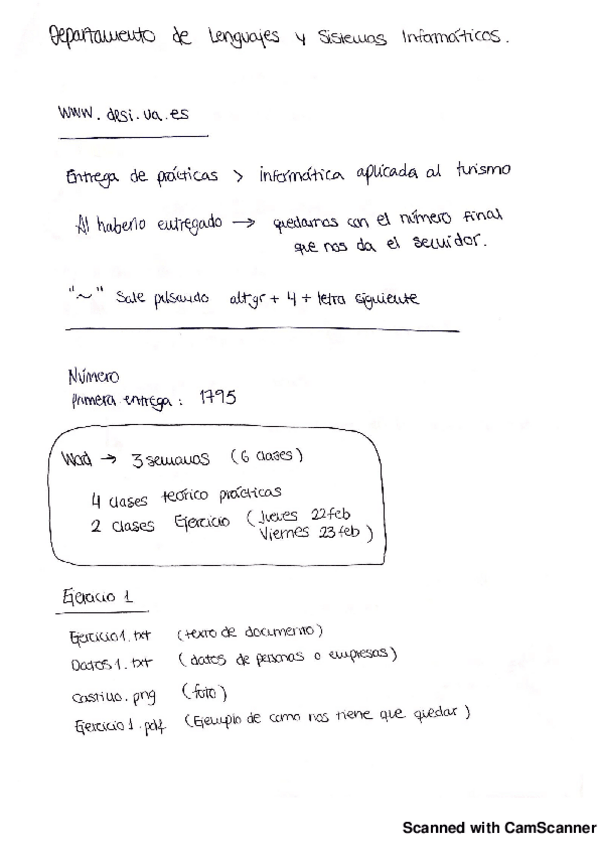 Departamento de Lenguajes y Sistemas Informáticos.
www.dlsi.ua.es
Entrega de prácticas > informática aplicada al turismo
Al haberlo entregado → quedarnos con el número final
que nos da el servidor.
"~" Sale pulsando alt gr + 4 + letra siguiente
Número
primera entrega : 1795
Word → 3 semanas (6 clases)
4 clases teórico prácticas
2 clases Ejercicio (Jueves 22 feb
Viernes 23 feb)
Ejercicio 1
Ejercicio1.txt (texto de documento)
Datos1.txt (datos de personas o empresas)
Castillo.png (foto)
Ejercicio1.pdf (Ejemplo de como nos tiene que quedar)
Scanned with CamScanner